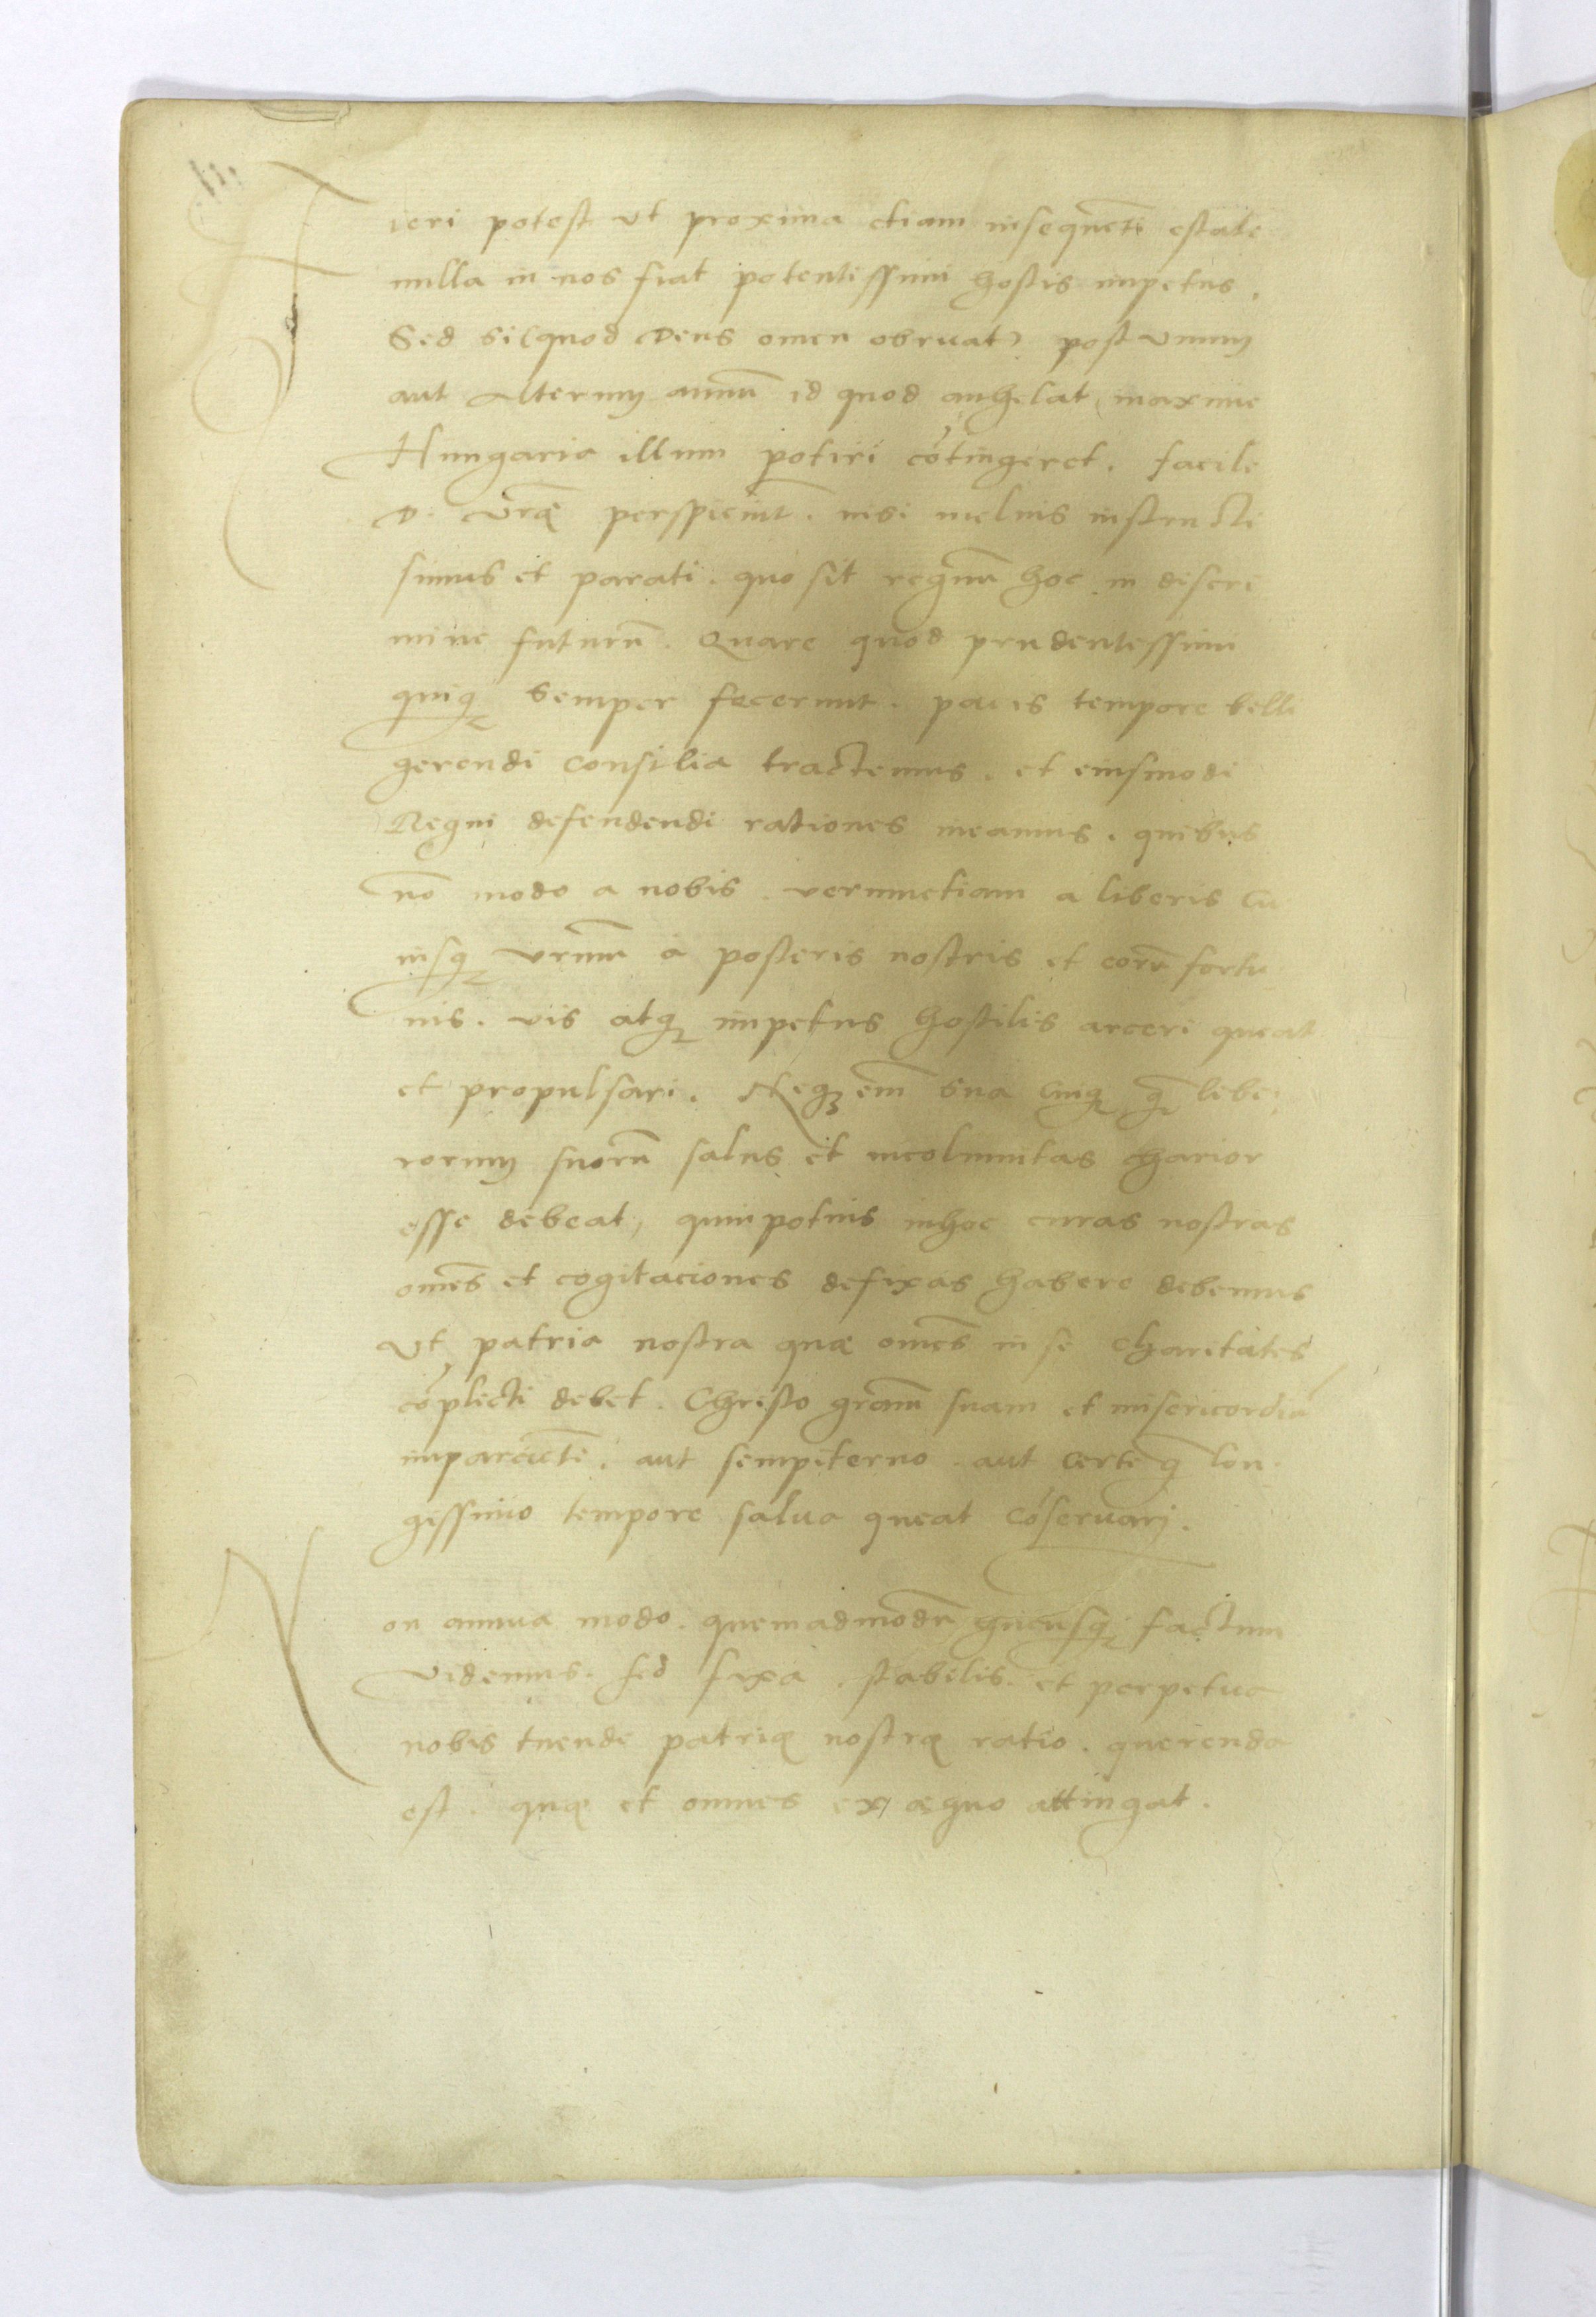 Fieri potest vt proxima etiam insequēti estate
nulla in nos fiat potentissimi hostis impetus.
Sed si (quod Deus omen obruat) post vnum
aut alterum annū id quod anhelat maxime
Hungaria illum potiri cōtingeret. facile
D. vrę perspiciūt. nisi melius instructi
simus et parati. quo sit regnū hoc in discri
mine futurū. Quare quod prudentissimi
quiq semper fecerunt. pacis tempore belli
gerendi consilia tractemus. et eiusmodi
Regni defendendi rationes ineamus. quibus
nō modo a nobis. verumetiam a liberis cu
iusq vrūm a posteris nostris et eorū fortu
nis. vis atq impetus hostilis arceri queat
et propulsari. Neq em̄ sua cuiq q̄ libe
rorum suorū salus et incolumitas charior
esse debeat, quinpotius inhoc curas nostras
om̄es et cogitaciones defixas habere debemus
Vt patria nostra quæ om̄es in se charitates
cōplecti debet. Christo grām suam et misericordiā
imparciēte. aut sempiterno. aut certe q̄ lon
gissimo tempore salua queat cōseruari.
Non annua modo. quemadmodū hucusq factum
videmus. sed fixa. stabilis. et perpetua
nobis tuende patrię nostrę ratio. querenda
est. quę et omnes ex æquo attingat.